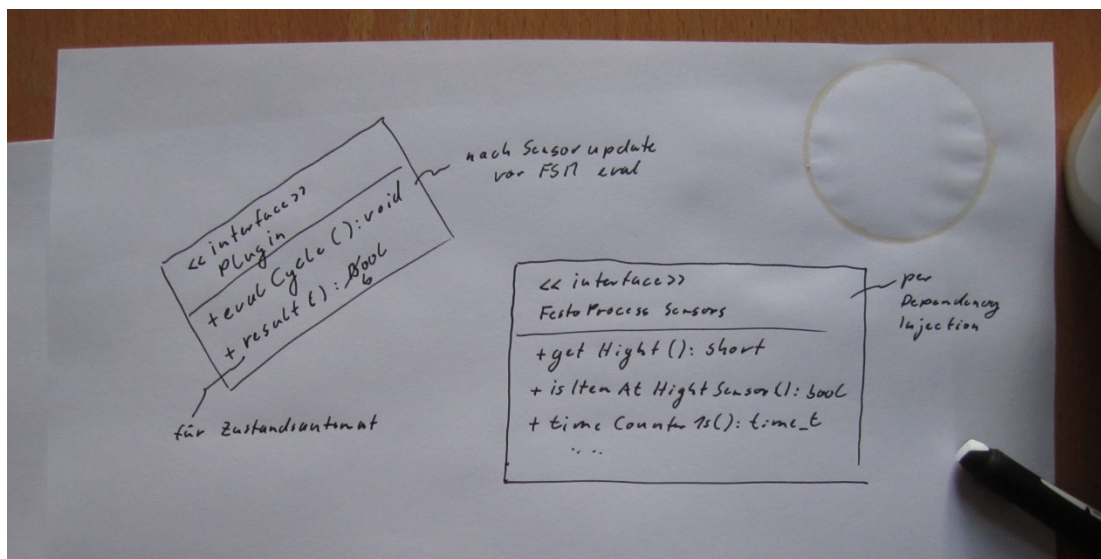 <<interface>>
plugin
+evalCycle():void
+result():bool
nach Sensorupdate
vor FSM eval
für Zustandsautomat
<<interface>>
FestoProcessSensors
+getHight():short
+isItemAtHightSensor():bool
+timeCounter1s():time_t
....
per
Dependency
Injection